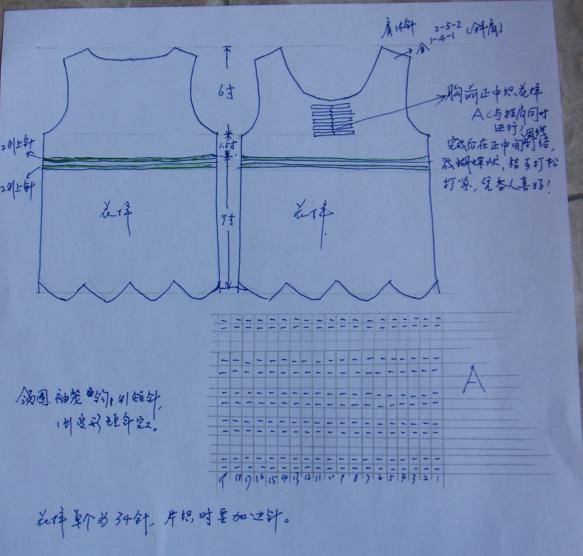 肩14针 2-5-2 (斜肩)
1-4-1
6寸
胸前正中织花样
AC与挂肩同时
进行)
完成后在正中间
成蝴蝶状,结子打松
打紧,凭各人喜好!
2行上针
1.5寸
2行上针
花样
9寸
花样
A
领围、袖笼钩:行短针,
1行变形短针完。
19 18 17 16 15 14 13 12 11 10 9 8 7 6 5 4 3 2 1
花样单个为34针,片织时要加边针。